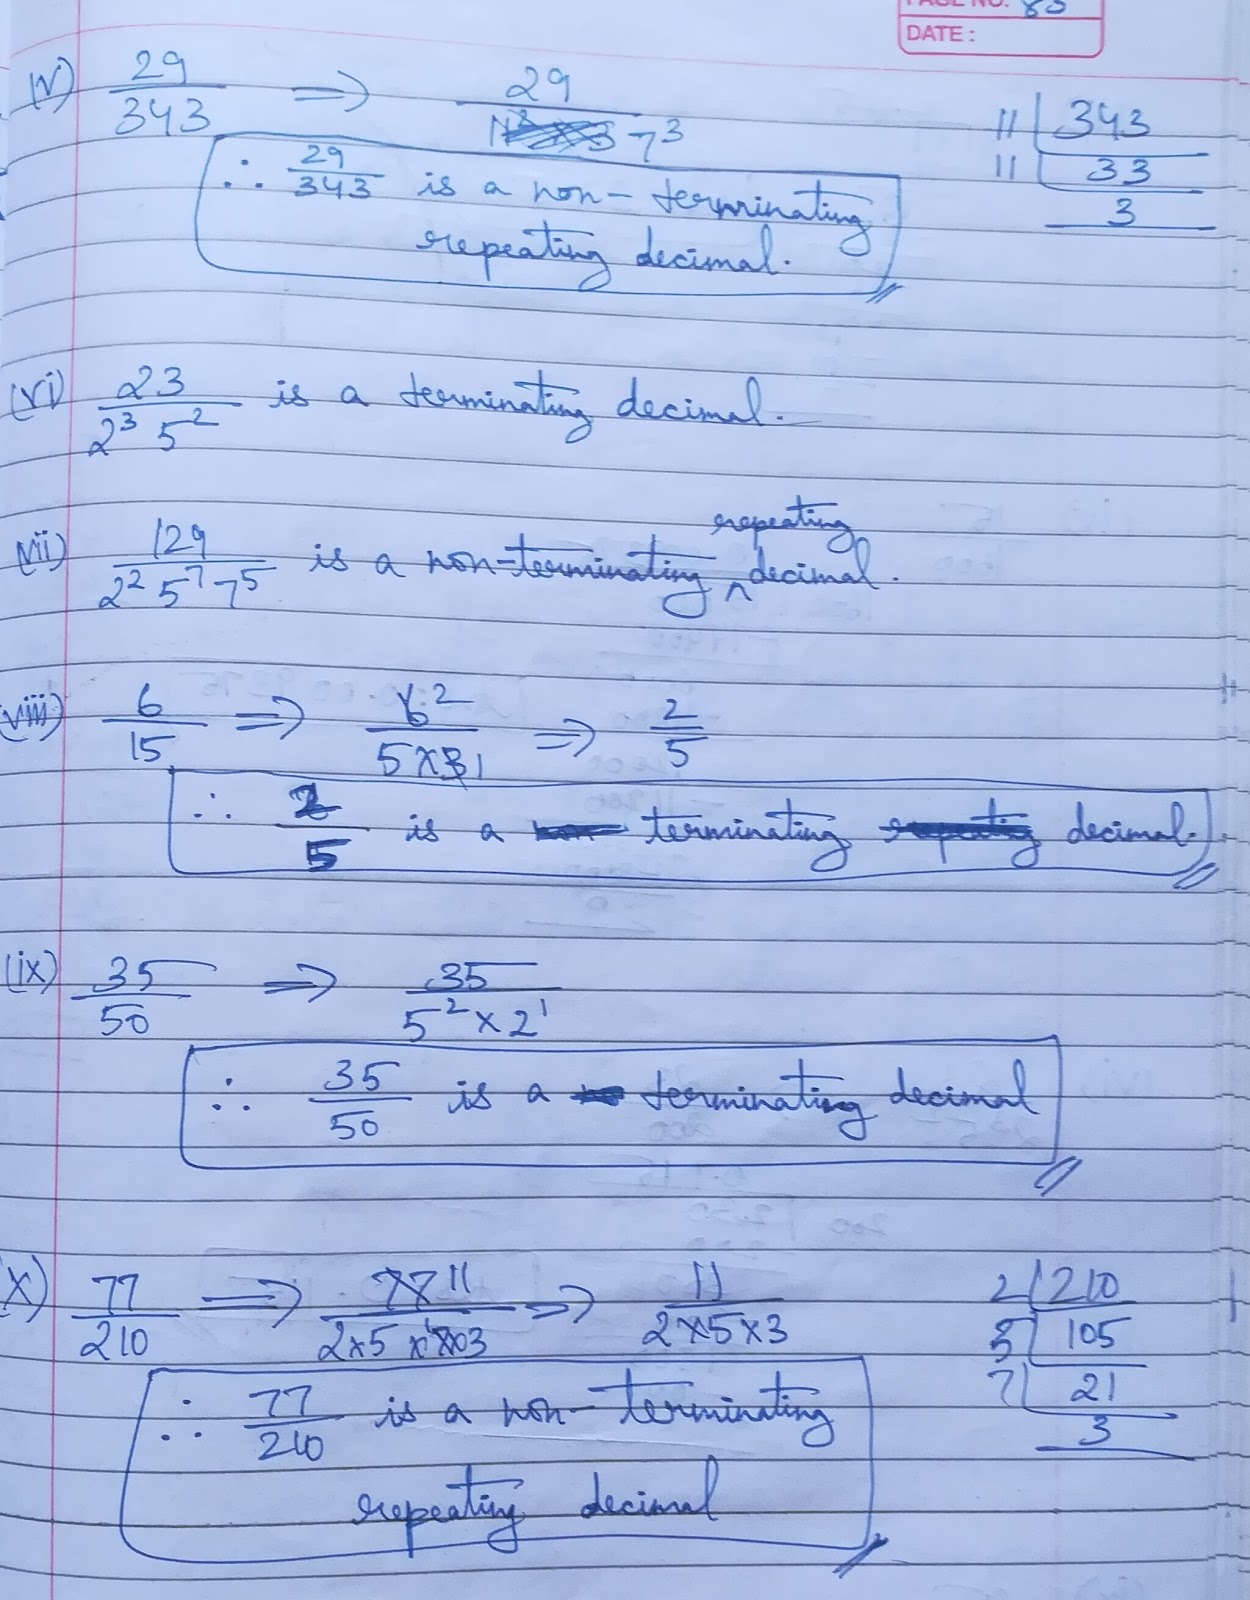 PAGE NO. 85
DATE :
(v) 29/343 ⇒ 29/7³
11 | 343
11 | 33
3
∴ 29/343 is a non-terminating
repeating decimal.
(vi) 23/2³ 5² is a terminating decimal.
(vii) 129/2² 5⁷ 7⁵ is a non-terminating repeating decimal.
(viii) 6/15 ⇒ 6 2/5×3 1 ⇒ 2/5
∴ 2/5 is a terminating decimal.
(ix) 35/50 ⇒ 35/5²×2¹
∴ 35/50 is a terminating decimal
(x) 77/210 ⇒ 77 11/2×5×7×3 ⇒ 11/2×5×3
2 | 210
5 | 105
7 | 21
3
∴ 77/210 is a non-terminating
repeating decimal